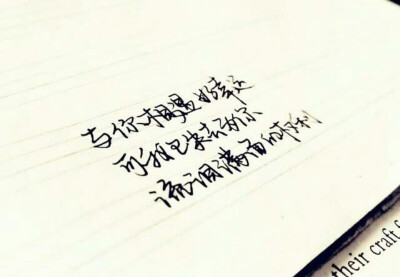 与你相遇好幸运
可我已失去为你
流泪满面的权利
their craft f